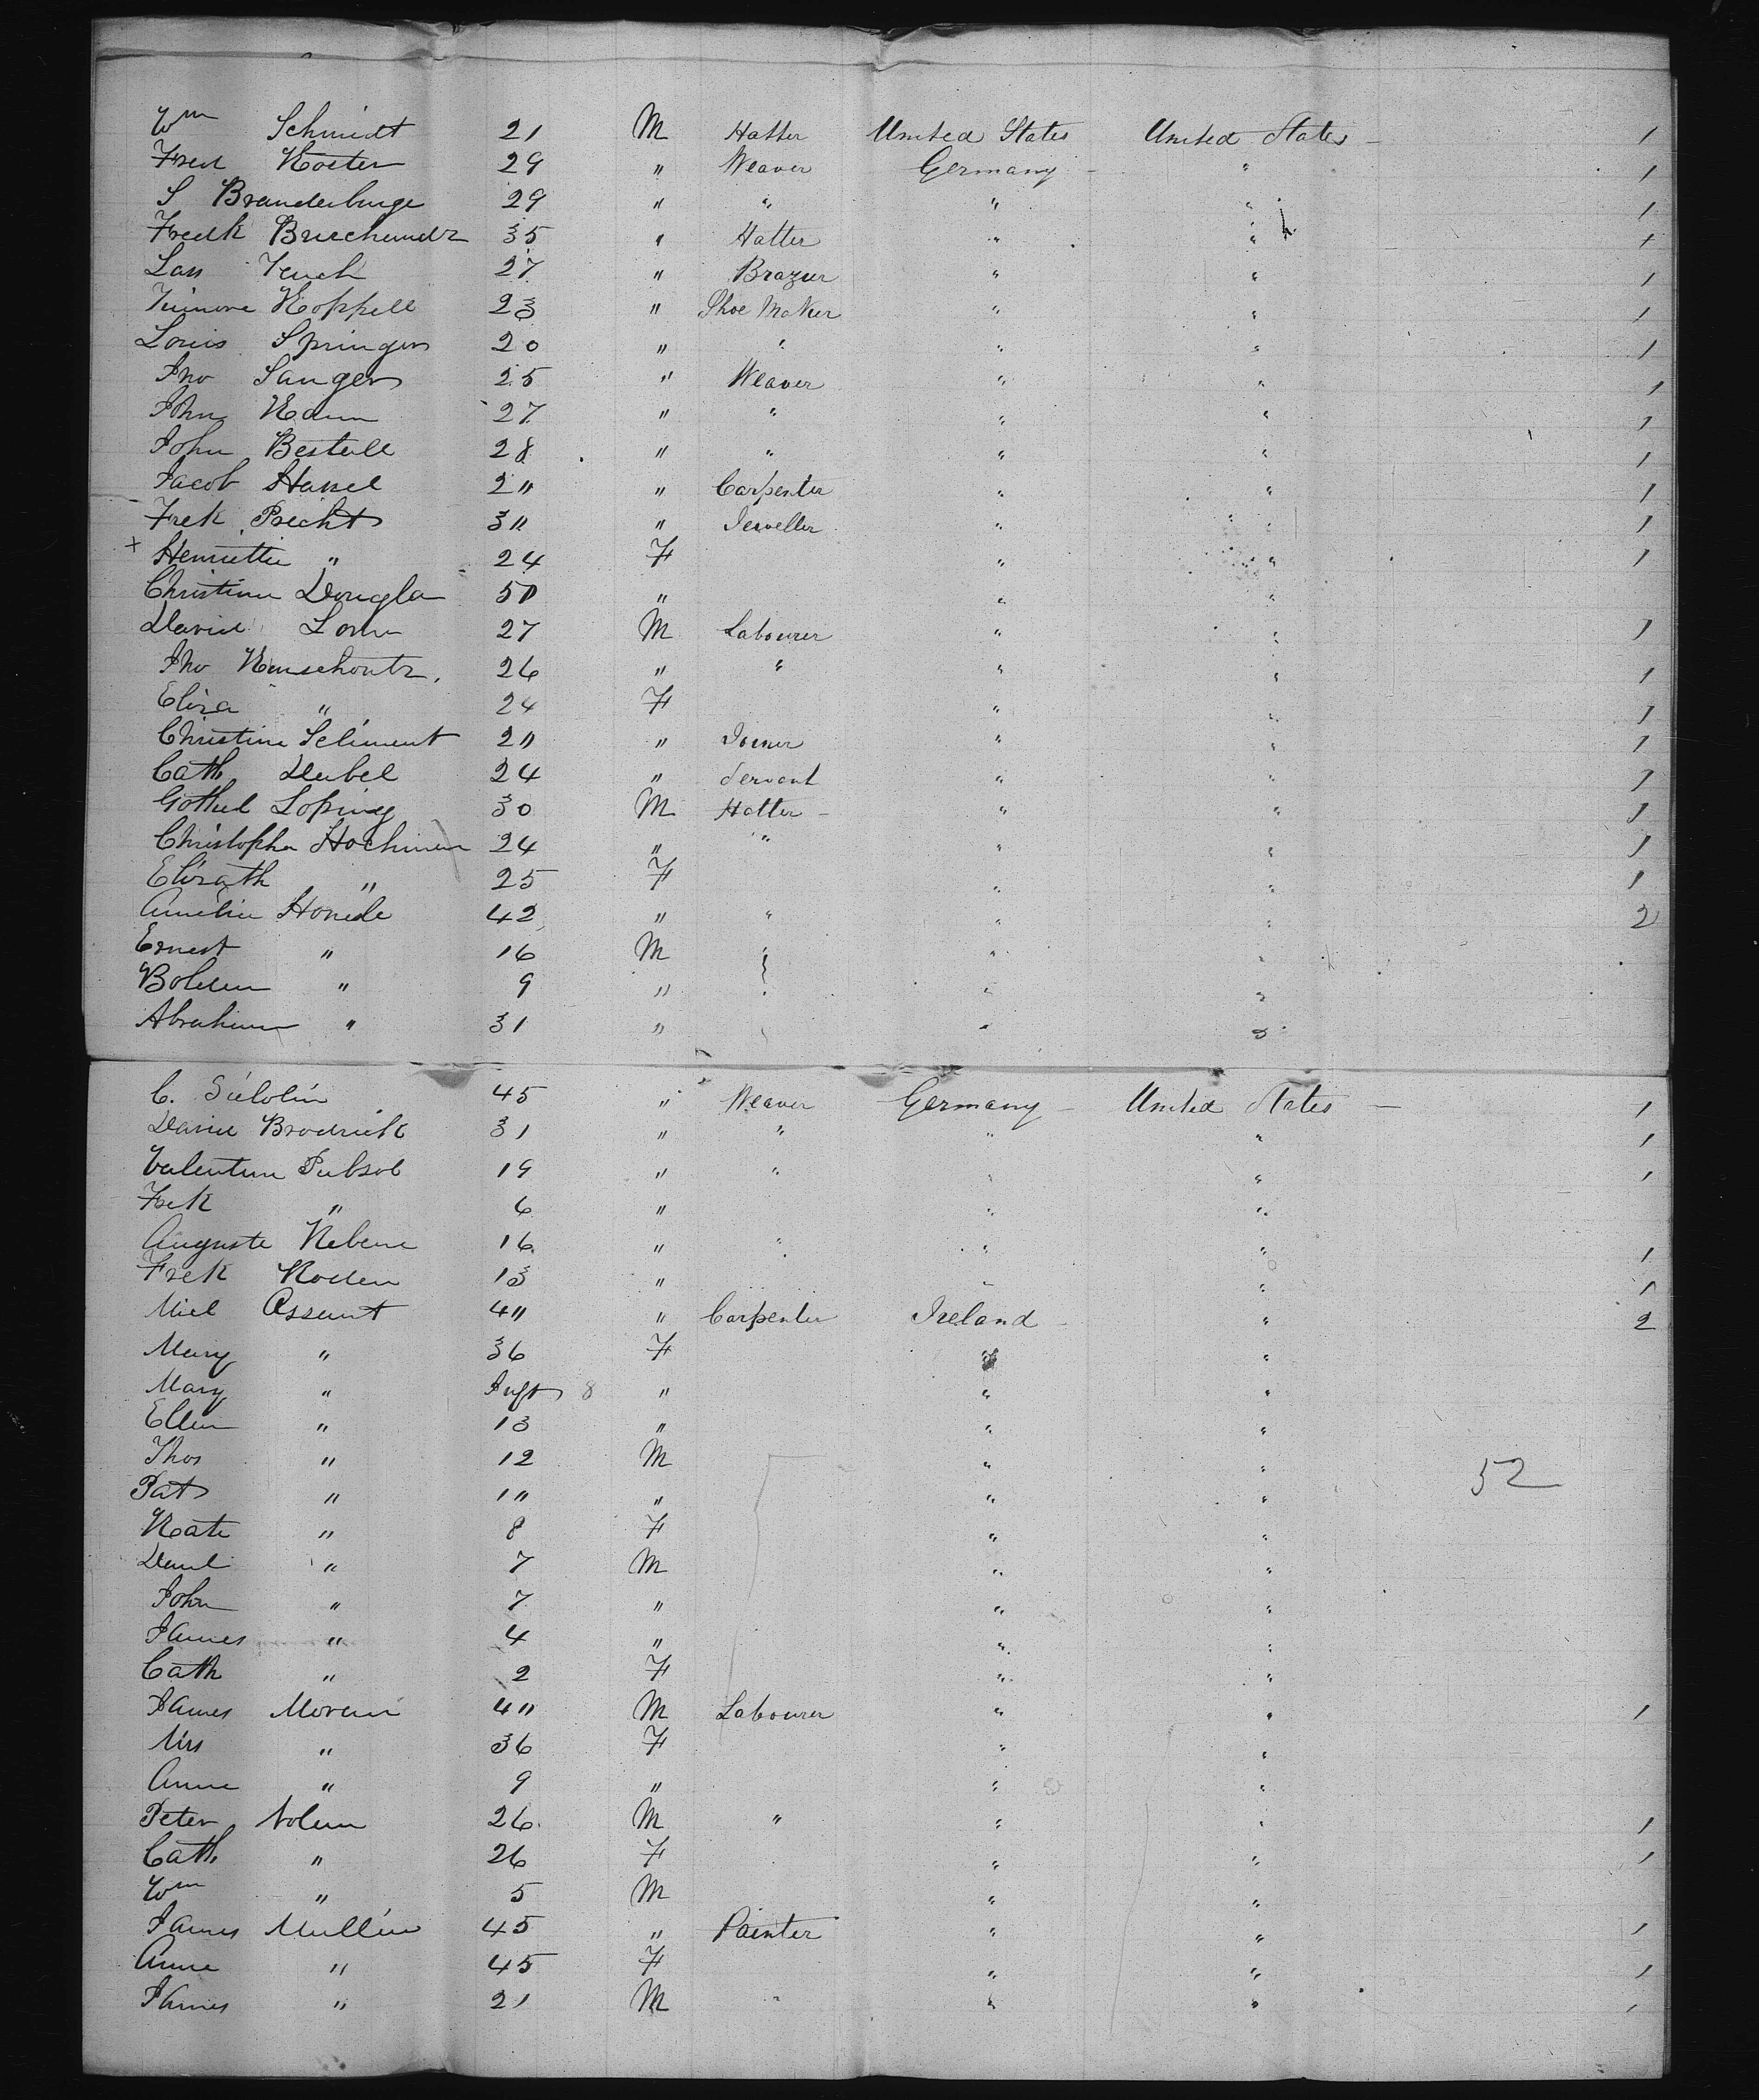 Wm Schmidt 21 M Hatter United States United States — 1
Fred Koster 29 " Weaver Germany — " 1
S Brandenburge 29 " " " " 1
Fredk 35 " Hatter " " 1
27 " Brazier " " 1
Koppell 23 " Shoe Maker " " 1
Louis Springer 20 " " " " 1
Jno Sanger 25 " Weaver " " 1
John 27 " " " " 1
John Bestell 28 " " " " 1
Jacob Hassel 2" " Carpenter " " 1
Frek Precht 3" " Jeweller " " 1
+ Henrietta " 24 F " " 1
Christina Dougla " " "
David 27 M Labourer " " 1
Jno 26 " " " " 1
Eliza " 24 F " " 1
Christina 2" " " " 1
Cath Dubel 24 " Servant " " 1
Loping 30 M Hatter — " " 1
Christopher 24 " " " " 1
Elizath " 25 F " " 1
Amelia 42 " " " " 2
Ernest " 16 M " " "
" 9 " " "
Abraham " 31 " " "
C. 45 " Weaver Germany — United States — 1
Brodrick 31 " " " " 1
Valentine 19 " " " " 1
Frek " 6 " " "
Auguste 16 " " " " 1
Frek 13 " " " 1
Assent 4" " Carpenter Ireland — " 2
Mary " 36 F " "
Mary " Inft 8 " " "
Ellen " 13 " " "
Thos " 12 M " "
52
Pat " 1" " " "
Kate " 8 F " "
Danl " 7 M " "
John " 7 " " "
James " 4 " " "
Cath " 2 F " "
James Moran 4" M Labourer " " 1
Mrs " 36 F " "
Anne " 9 " " "
Peter Nolan 26 M " " " 1
Cath " 26 F " " 1
Wm " 5 M " "
James Mullin 45 " Painter " " 1
Anne " 45 F " " 1
James " 21 M " " " 1